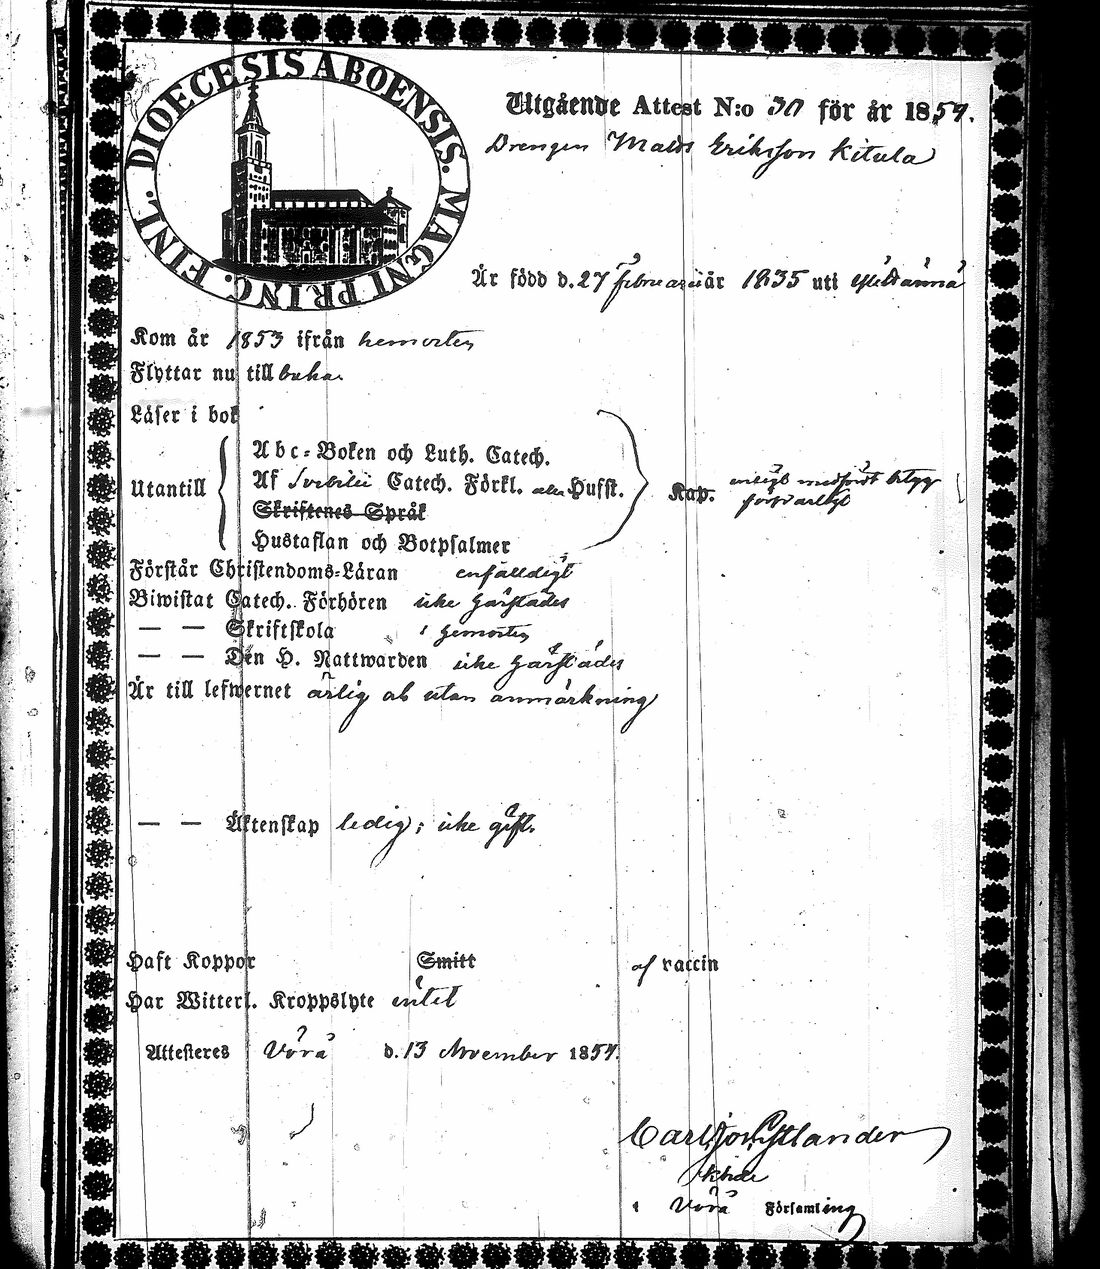 DIOECESIS ABOENSIS. MAGNI PRINC. FINL.
Utgående Attest N:o 30 för år 1854.
Drengen Matts Eriksson Kitula
Är född d. 27 Februarii år 1835 uti
Kom år 1853 ifrån hemorten
Flyttar nu till baka.
Läser i bok
Abc-Boken och Luth. Catech.
Utantill Af Svebilii Catech. Förkl. Husst. Kap. enligt medfördt betyg
försvarligt
Skriftenes Språk
Hustaflan och Botpsalmer
Förstår Christendoms-Läran enfalldigt
Biwistat Catech. Förhören icke härstädes
— — Skriftskola i hemorten
— — Den H. Nattwarden icke härstädes
Är till lefwernet ärlig och utan anmärkning
— — Äktenskap ledig; icke gift.
Haft Koppor Smitt af vaccin
Har Witterl. Kroppslyte intet
Attesteres Vörå d. 13 November 1854.
Carl
i Vörå Församling